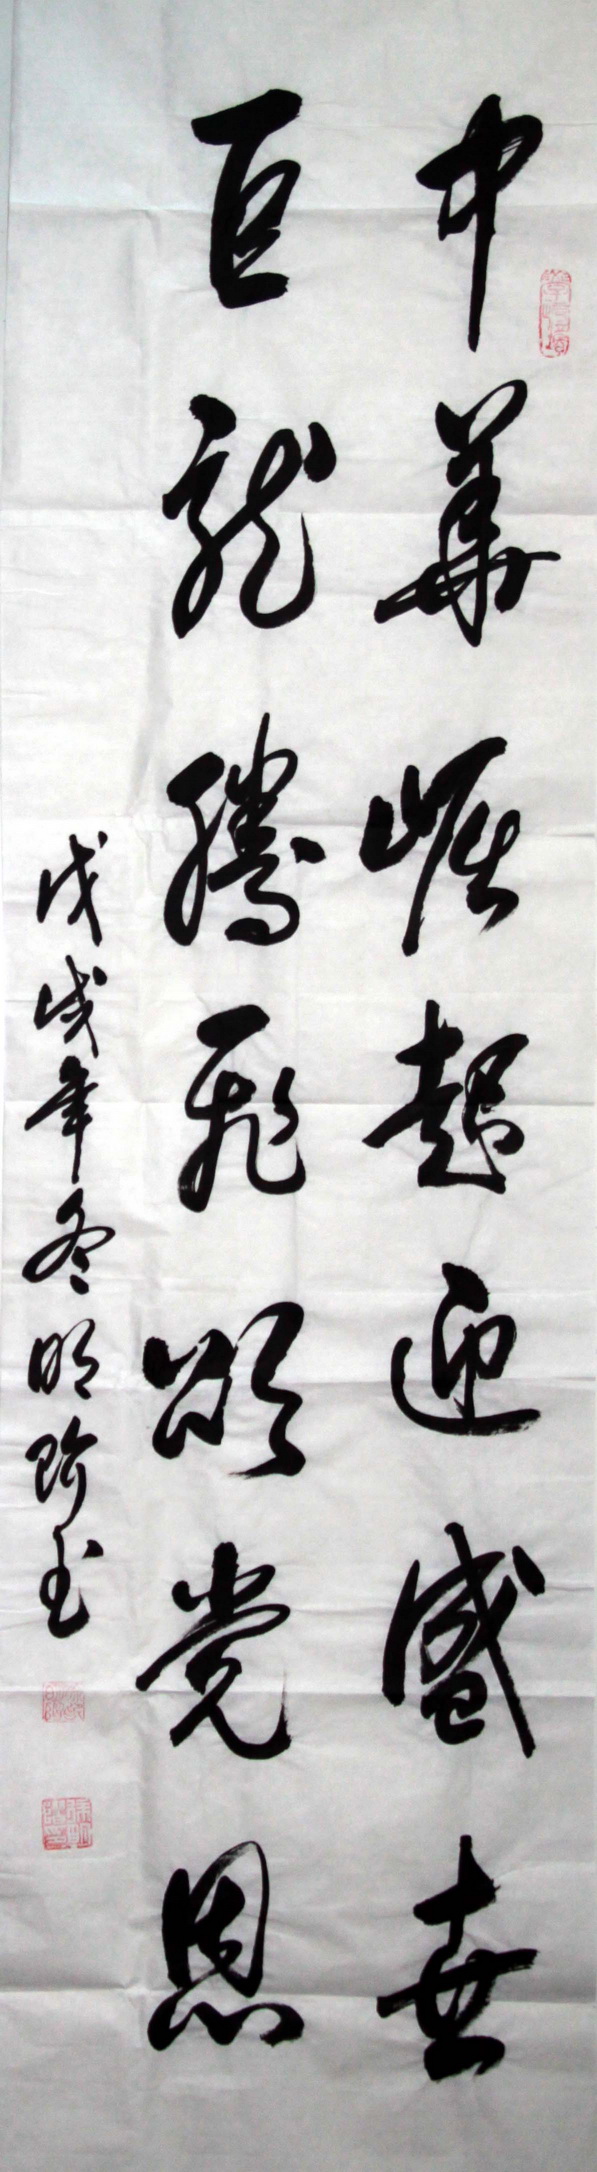 中華崛起迎盛世
巨龍騰飛頌党恩
戊戌年冬明珍書